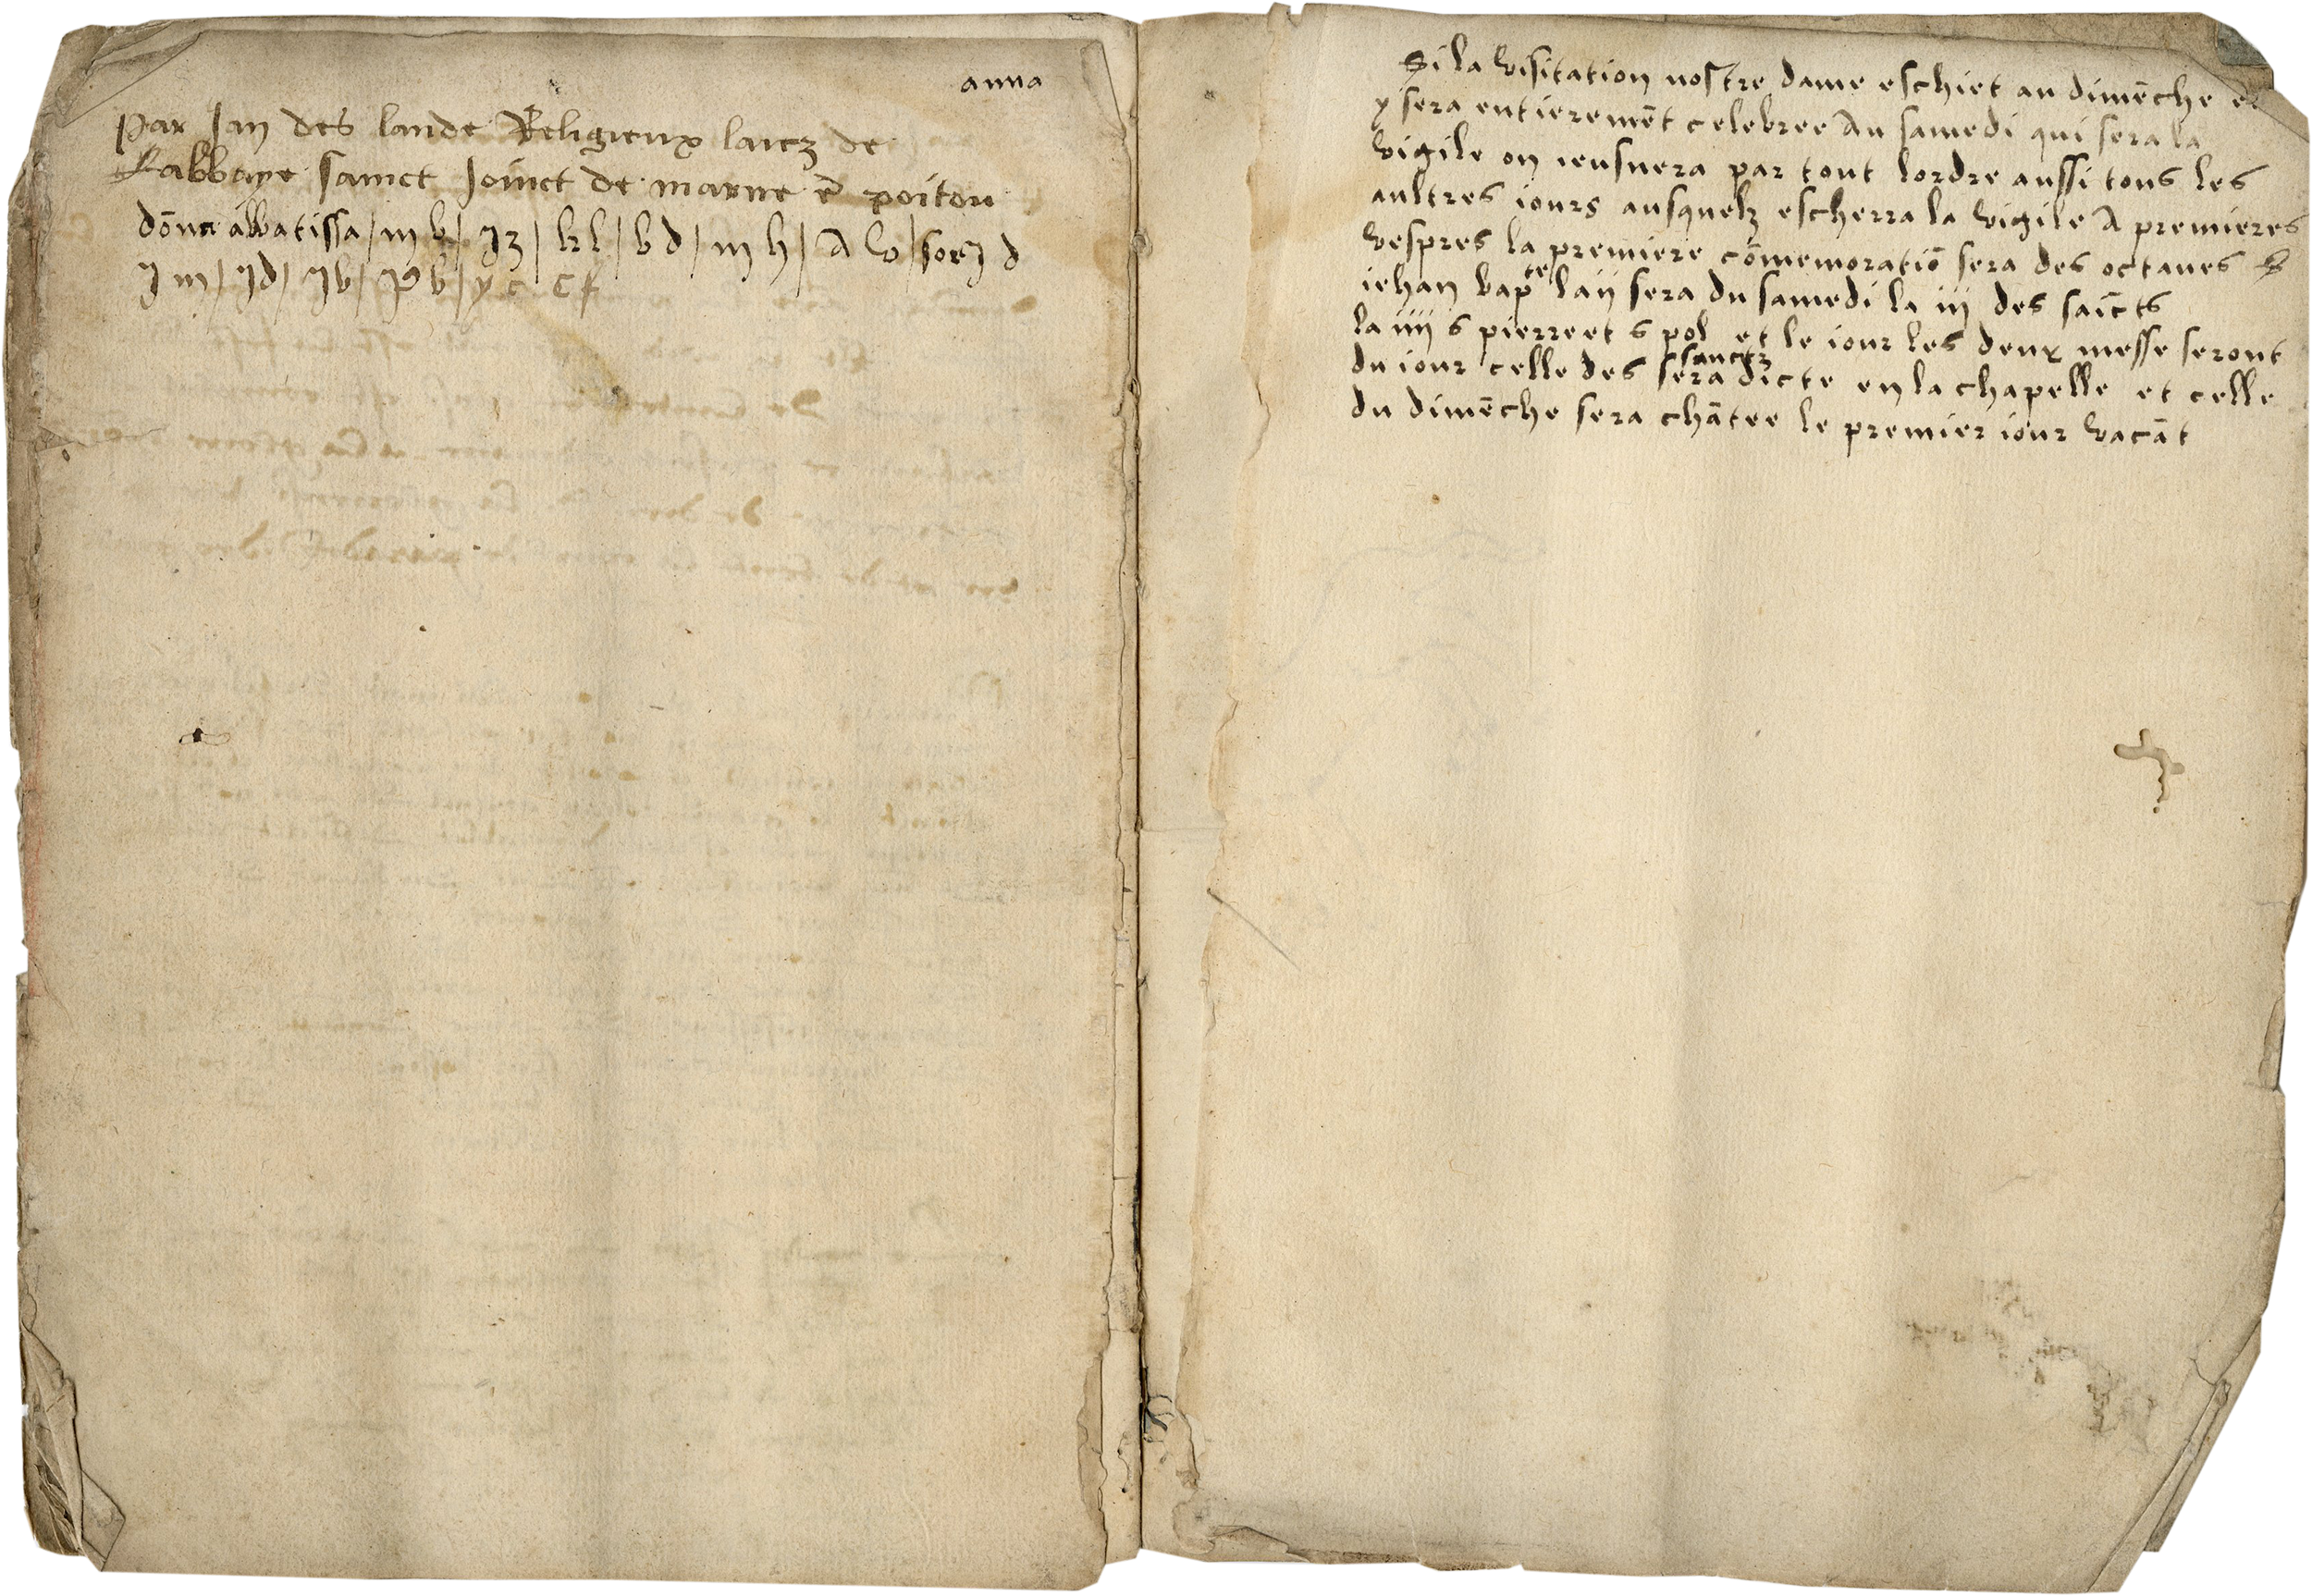 anna
Par Jan des lande Religieux laicz de
Labbaye sainct Joinct de marne ē poitou
dōna abbatissa / m b / J z / k l / b d / m h / A v / sor J d
J m / J d / J b / p b / y c c f
Si la visitation nostre dame eschiet au dimēche et
y sera entieremēt celebree Au samedi qui sera la
vigile on ieusnera par tout lordre aussi tous les
aultres iours ausquelz escherra la vigile A premieres
vespres la premiere cōmemoratiō sera des octaues S
iehan bapte la ii sera du samedi la iii des saīcts
la iiii s pierre et s pol et le iour les deux messe seront
sanctz
du iour celle des sera dicte en la chapelle et celle
du dimēche sera chātee le premier iour vacāt